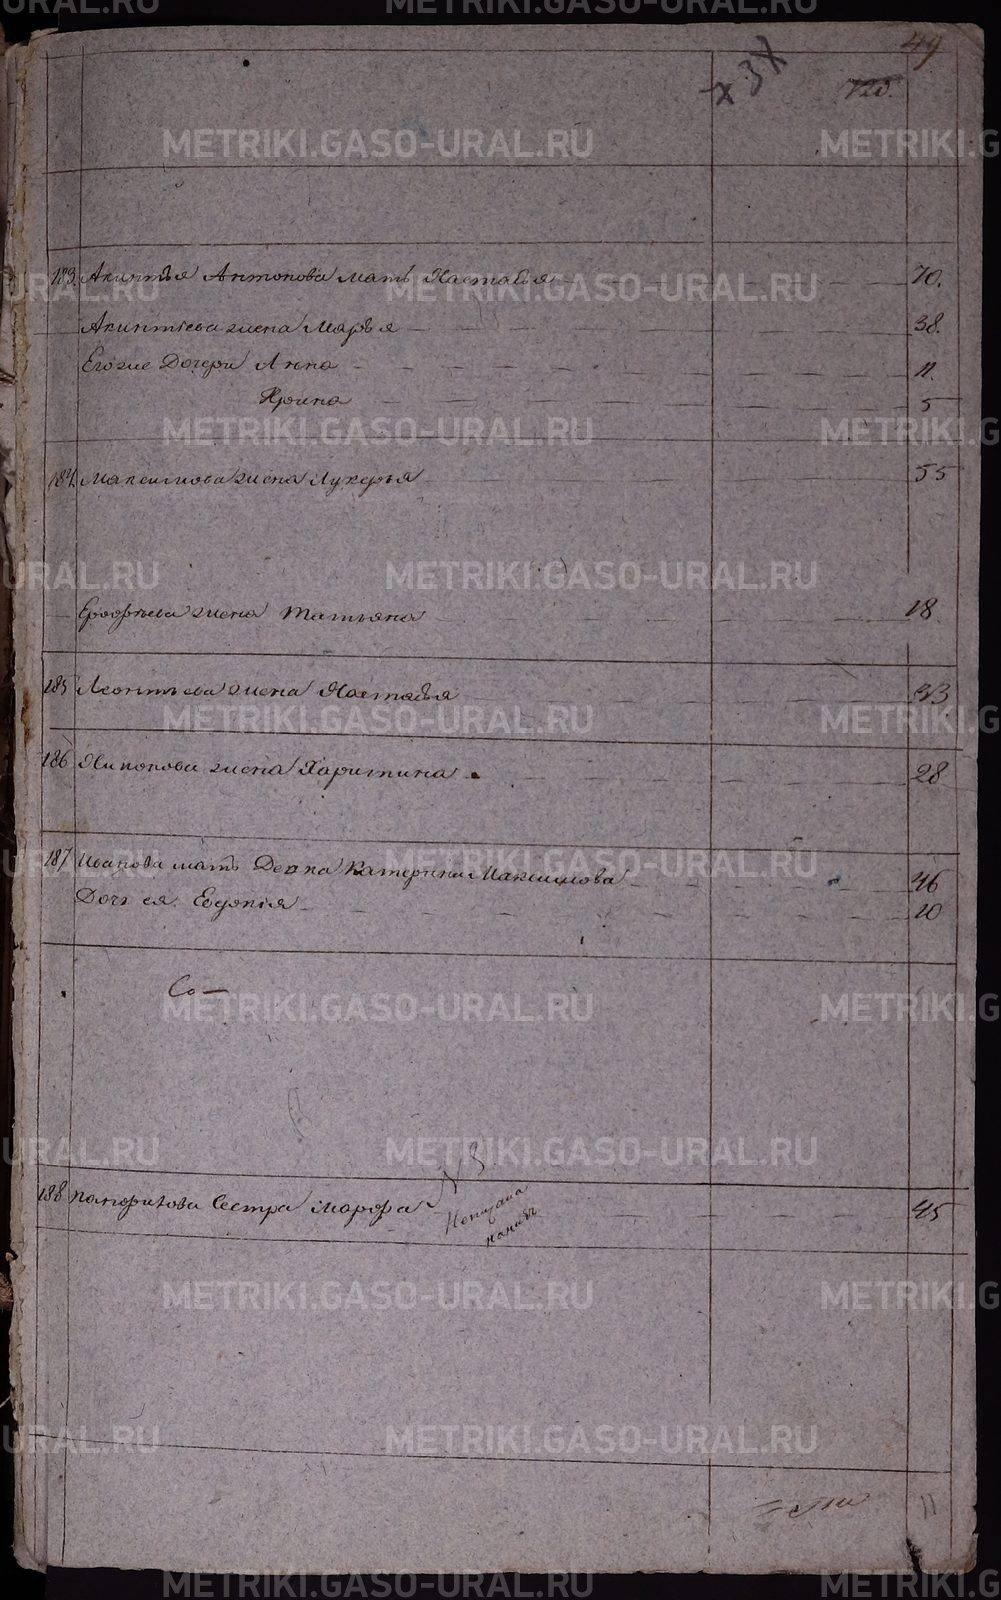 49
х 3 Х
720.
183. Акинтѣя Антонова мать Настасья 70.
Акинтіева жена Марья 38.
Его же Дочери Анна 11.
Ирина 5
184. Максимова жена Лукерья 55
Ерофѣева жена Татьяна 18.
185 Леонтьева жена Настасья 33
186 Никонова жена Харитина 28
187 Иванова мать Вдова Катерина Максимова 46
Дочь ея Евдокія 10
Со—
188 Панфилова Сестра Марфа 45
METRIKI.GASO-URAL.RU